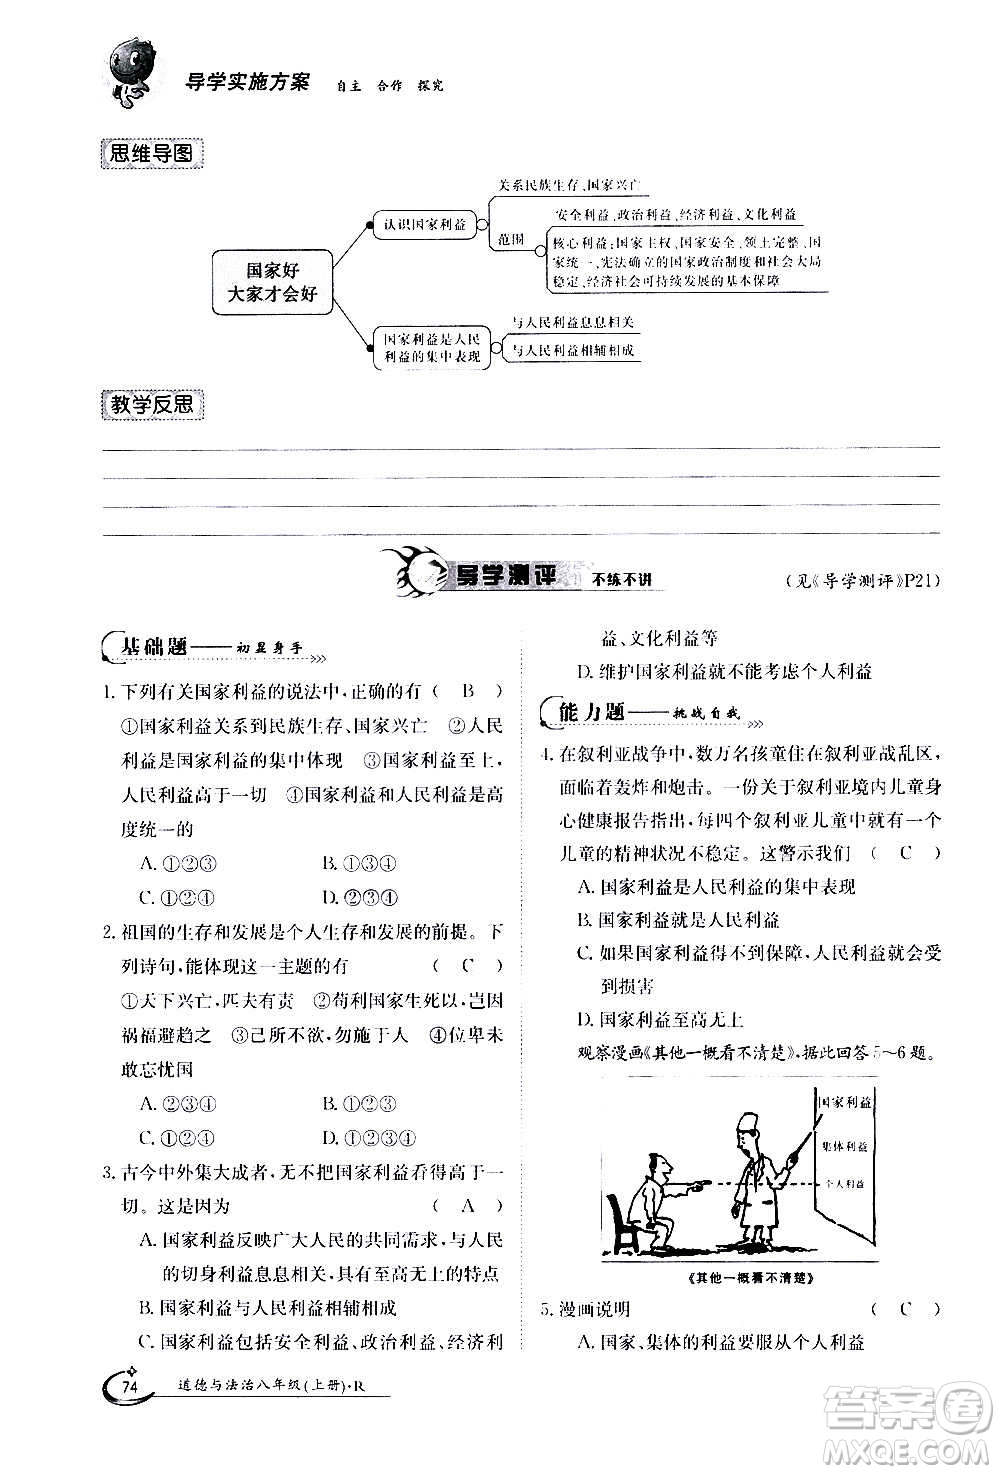 导学实施方案 自主 合作 探究
思维导图
关系民族生存、国家兴亡
安全利益、政治利益、经济利益、文化利益
认识国家利益
范围
核心利益:国家主权、国家安全、领土完整、国
家统一、宪法确立的国家政治制度和社会大局
稳定、经济社会可持续发展的基本保障
国家好
大家才会好
与人民利益息息相关
国家利益是人民
利益的集中表现
与人民利益相辅相成
教学反思
导学测评 不练不讲 (见《导学测评》P21)
基础题——初显身手
1. 下列有关国家利益的说法中,正确的有 ( B )
①国家利益关系到民族生存、国家兴亡 ②人民
利益是国家利益的集中体现 ③国家利益、
人民利益高于一切 ④国家利益和人民利益是高
度统一的
A. ①②③ B. ①③④
C. ①②④ D. ②③④
2. 祖国的生存和发展是个人生存和发展的前提。下
列诗句,能体现这一主题的有 ( C )
①天下兴亡,匹夫有责 ②苟利国家生死以,岂因
祸福避趋之 ③己所不欲,勿施于人 ④位卑未
敢忘忧国
A. ②③④ B. ①③④
C. ①②④ D. ①②③④
3. 古今中外集大成者,无不把国家利益看得高于一
切。这是因为 ( A )
A. 国家利益反映广大人民的共同需求,与人民
的切身利益息息相关,具有至高无上的特点
B. 国家利益与人民利益相辅相成
C. 国家利益包括安全利益、政治利益、经济利
益、文化利益等
D. 维护国家利益就不能考虑个人利益
能力题——挑战自我
4. 在叙利亚战争中,数万名孩童住在叙利亚战乱区,
面临着轰炸和炮击。一份关于叙利亚境内儿童身
心健康报告指出,每四个叙利亚儿童中就有一个
儿童的精神状况不稳定。这警示我们 ( C )
A. 国家利益是人民利益的集中表现
B. 国家利益就是人民利益
C. 如果国家利益得不到保障,人民利益会受
到损害
D. 国家利益至高无上
观察漫画《其他一概看不清楚》,据此回答5~6题。
国家利益
集体利益
个人利益
《其他一概看不清楚》
5. 漫画说明 ( C )
A. 国家、集体的利益要服从个人利益
74 道德与法治八年级(上册)·R
答案圈
MXQE.COM